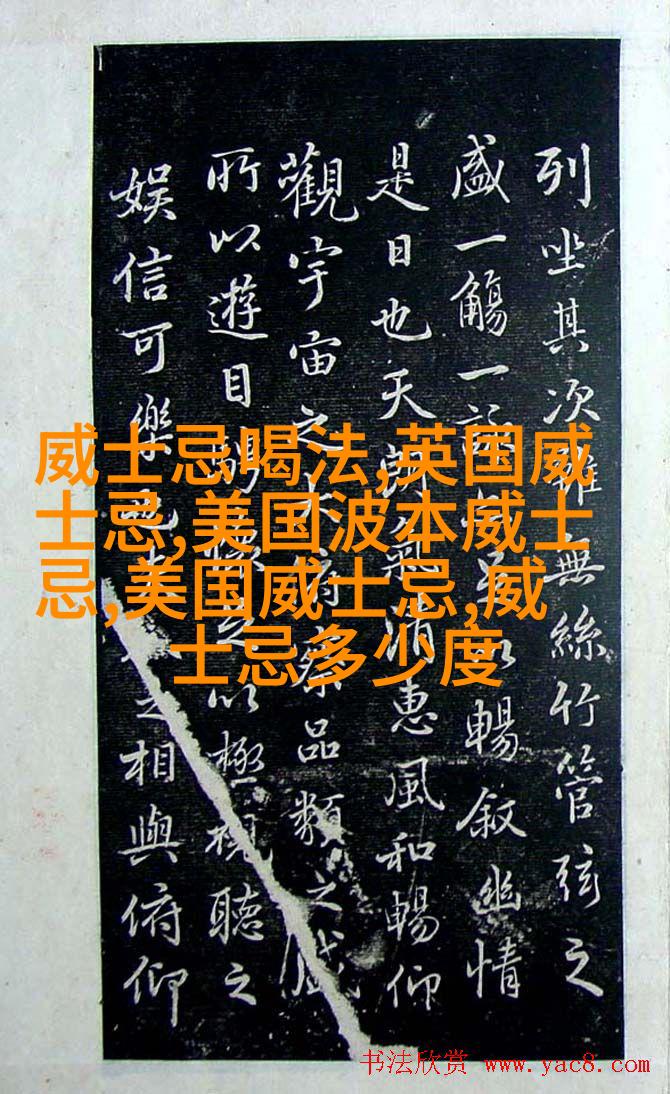 列坐其次雖無絲竹管弦之
盛一觴一詠亦足以暢叙幽情
是日也天朗氣清惠風和暢仰
觀宇宙之大俯察品類之盛
所以遊目騁懷足以極視聽之
娱信可樂也夫人之相與俯仰
威士忌喝法,英国威
士忌,美国波本威士
忌,美国威士忌,威
士忌多少度
书法欣赏 www.yac8.com